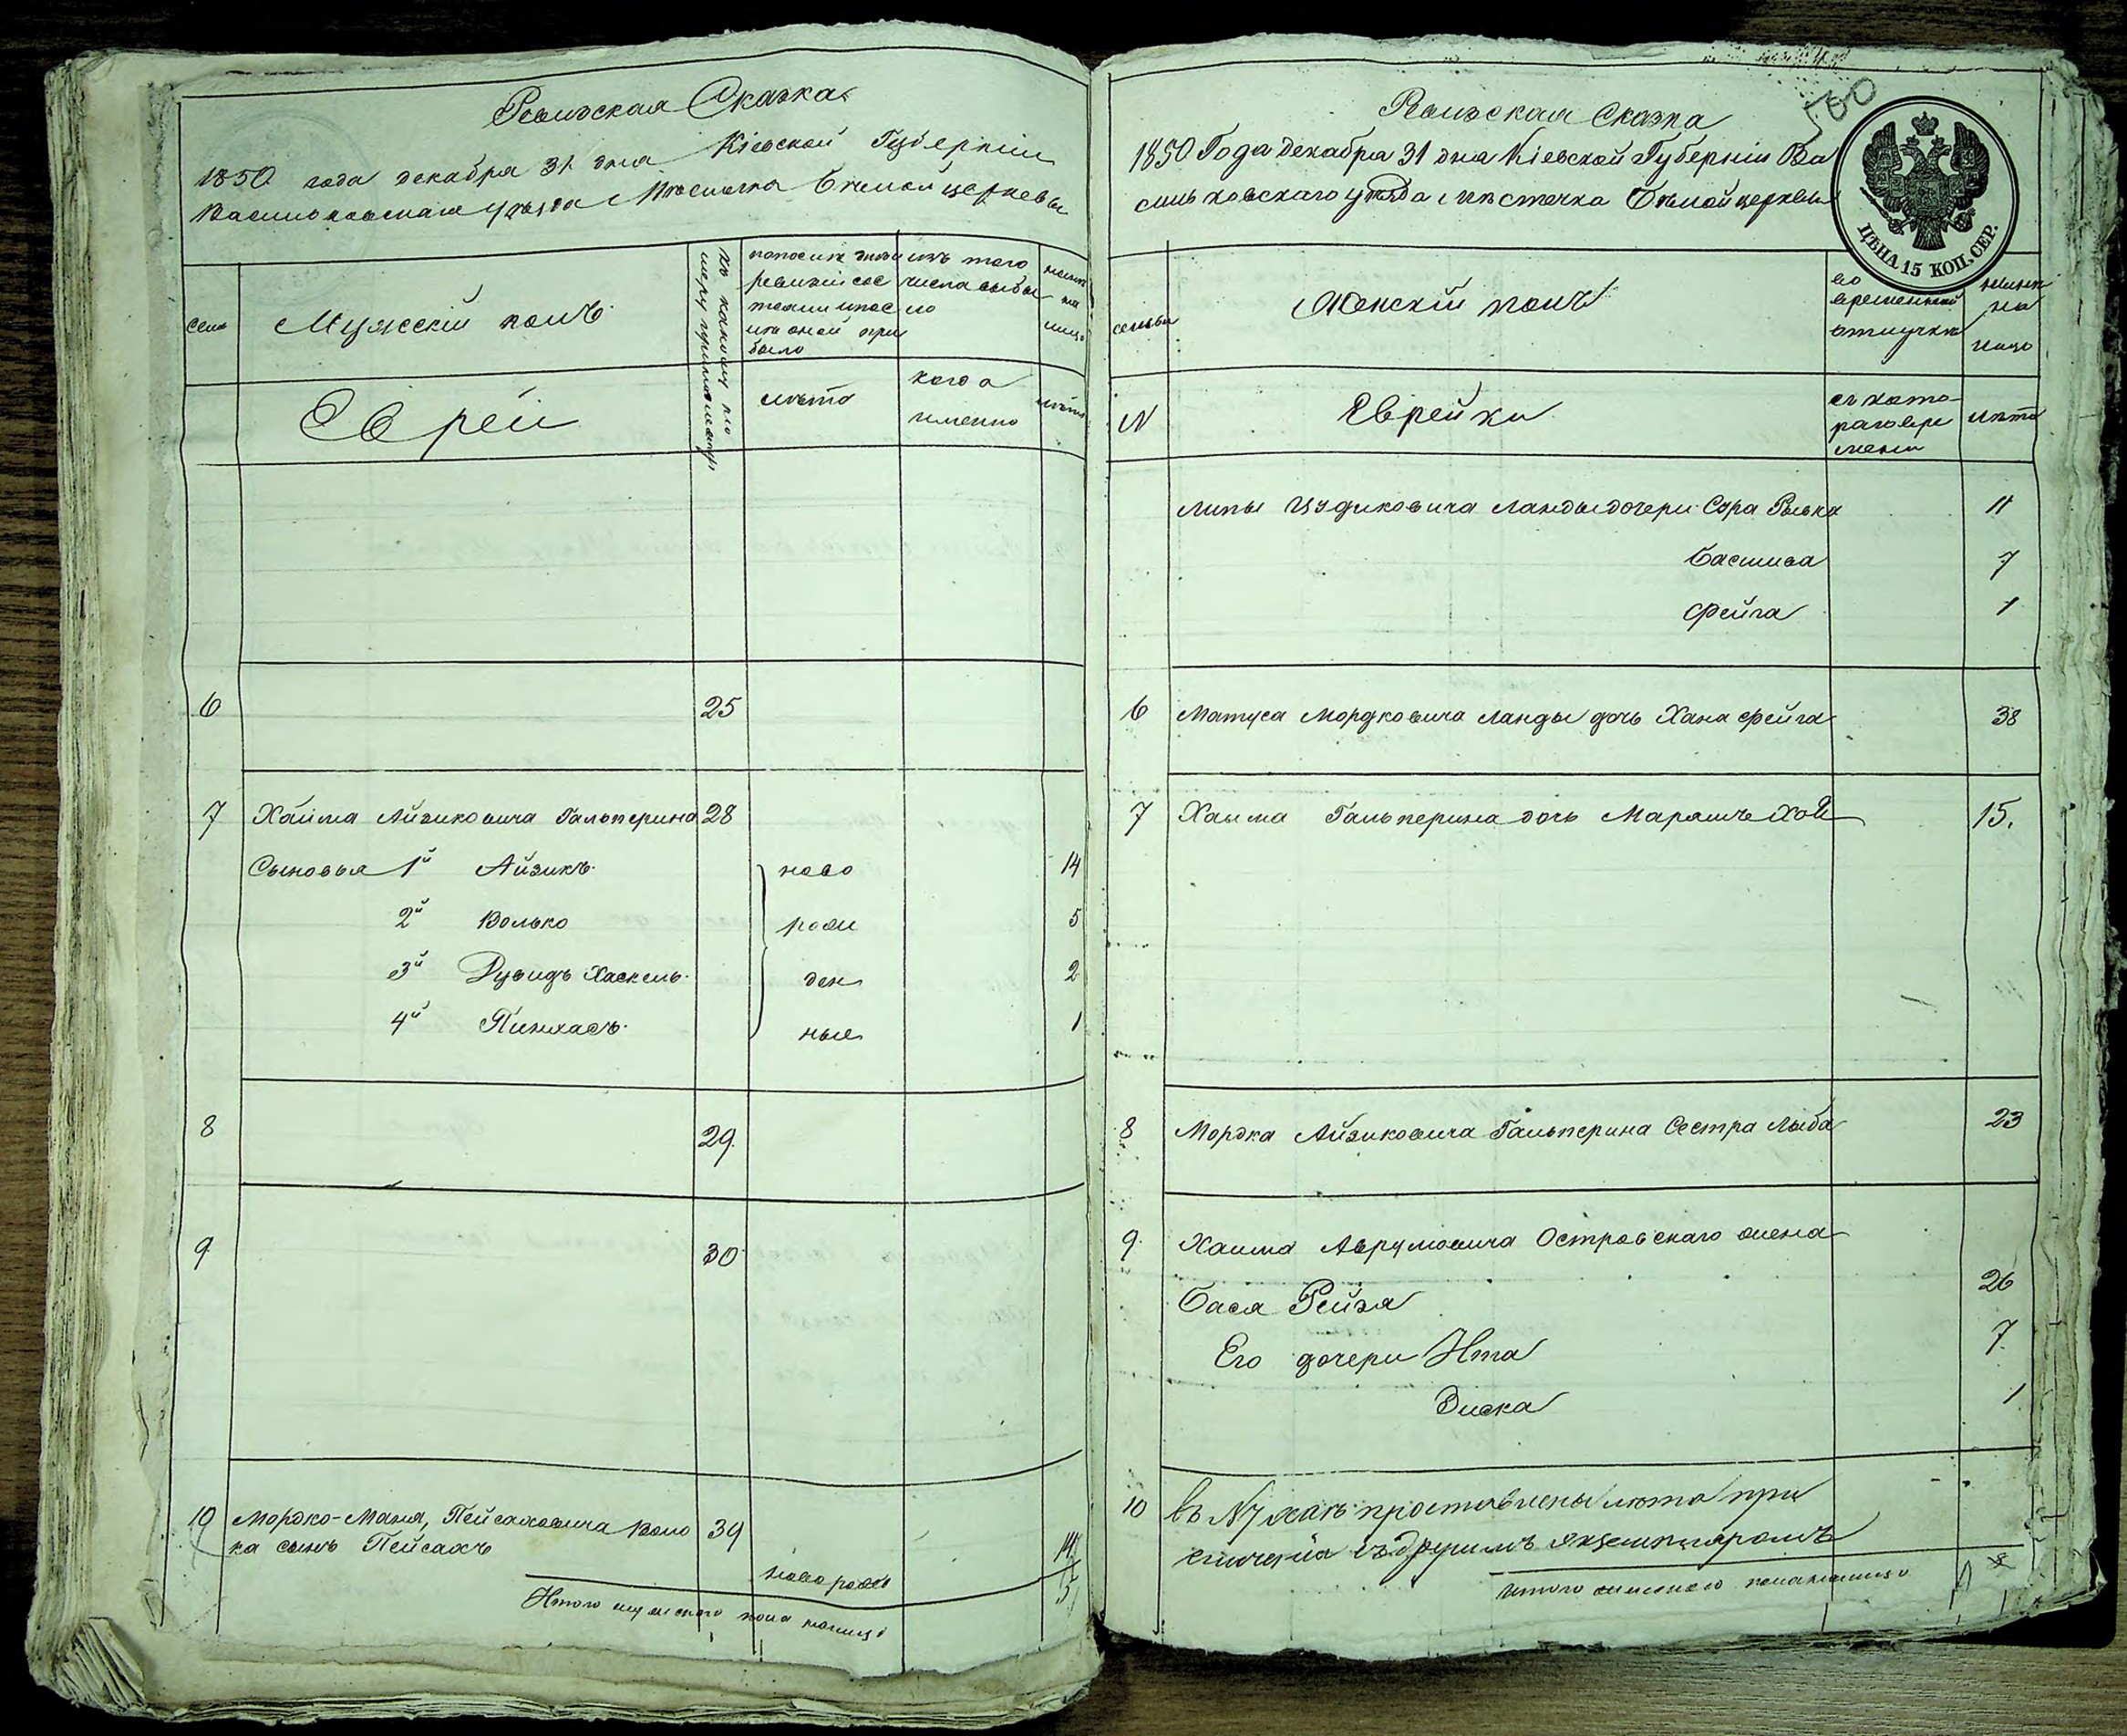 Ревизская Сказка
1850 года декабря 31 дня Кіевской Губерніи
Васильковскаго уѣзда Мѣстечка Бѣлой церкви
семьи
Мужескій полъ
по послѣдней
ревизіи сос
тояло и пос
лѣ оной при
было
изъ того
числа выбы
ло
нынѣ
на
лицо
Евреи
лѣта
когда
именно
лѣта
6 25
7 Хаима Айзиковича Гальперина 28
Сыновья 1й Айзикъ ново 14
2й Волько рож 5
3й Дувидъ Хаскель ден 2
4й Пинхасъ ные 1
8 29
9 30
10 Мордко-Маня, Пейсаховича Воль 39
ка сынъ Пейсахъ 14
ново рож
Итого мужескаго пола налицо 5
500
Ревизская Сказка
1850 Года декабря 31 дня Кіевской Губерніи Ва
сильковскаго уѣзда мѣстечка Бѣлой церкви
ЦѢНА 15 КОП. СЕР.
семьи
Женскій полъ
во
временной
отлучкѣ
нынѣ
на
лицо
N
Еврейки
съ кото
раго вре
мени
лѣта
Липы Цудиковича Ланды дочери Сура Рывка 11
Басшива 7
Фейга 1
6 Матуса Мордковича Ланды дочь Хана Фейга 38
7 Хаима Гальперина дочь Маряшъ Хая 15.
8 Мордка Айзиковича Гальперина Сестра Лыба 23
9 Хаима Аврумовича Островскаго жена
Бася Рейзя 26
Его дочери Ита 7
Диска 1
10 въ N7 проставлены лѣта при
сличеніи съ другимъ экземпляромъ
Итого женскаго пола налицо